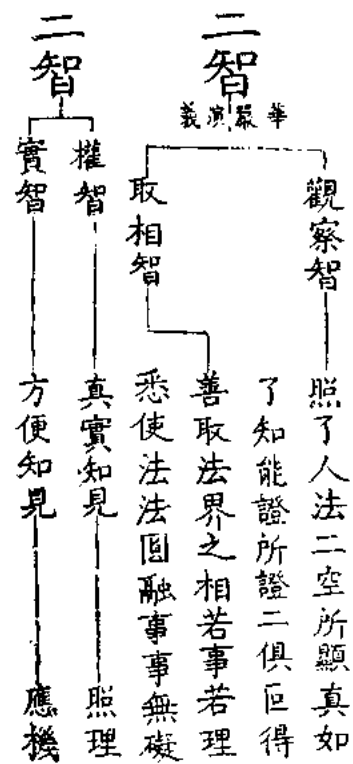 二智
華嚴演義
觀察智
照了人法二空所顯真如
了知能證所證二俱叵得
取相智
善取法界之相若事若理
悉使法法圓融事事無礙
二智
權智
真實知見
照理
實智
方便知見
應機